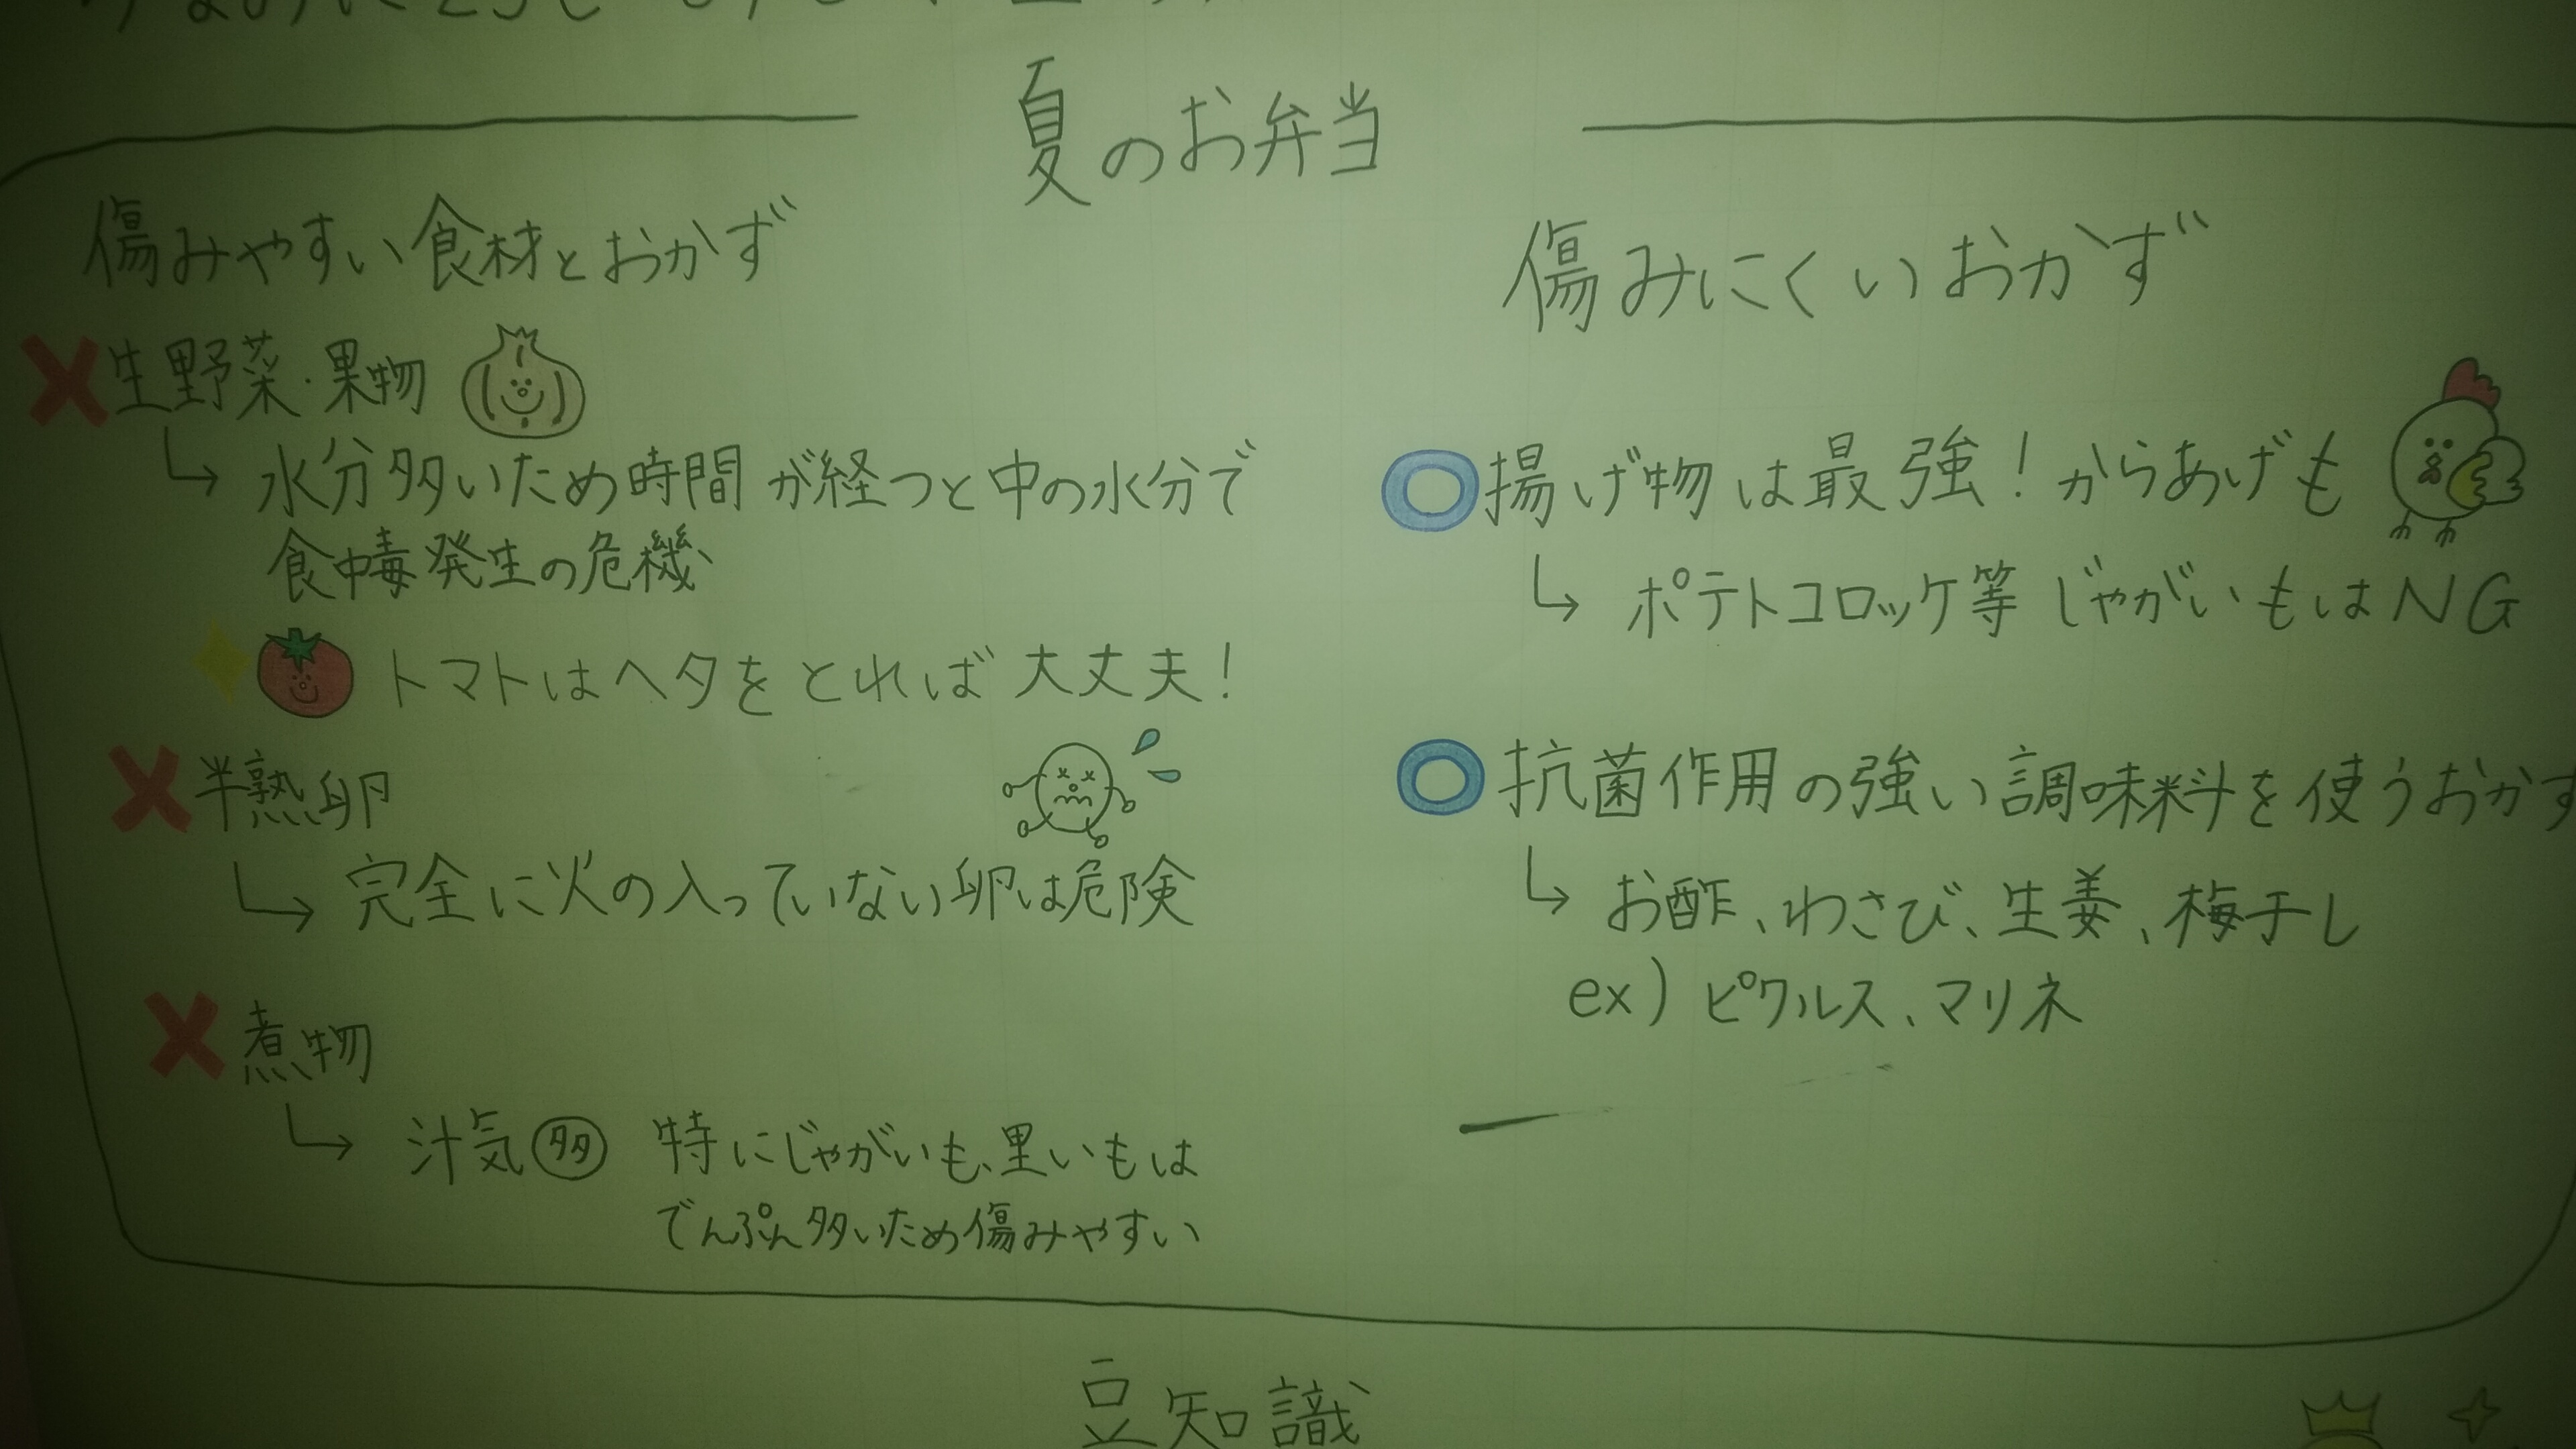 夏のお弁当
傷みやすい食材とおかず
生野菜・果物
水分多いため時間が経つと中の水分で
食中毒発生の危機
トマトはヘタをとれば大丈夫!
半熟卵
完全に火の入っていない卵は危険
煮物
汁気多 特にじゃがいも、里いもは
でんぷん多いため傷みやすい
傷みにくいおかず
揚げ物は最強!からあげも
ポテトコロッケ等じゃがいもはNG
抗菌作用の強い調味料を使うおかず
お酢、わさび、生姜、梅干し
ex) ピクルス、マリネ
豆知識